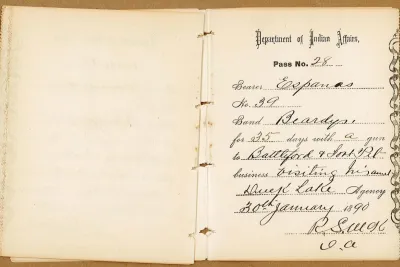 Department of Indian Affairs,
Pass No. 28
Bearer Espanas
No. 39
Band Beardys.
for 35 days with a gun
to Battleford & Fort Pitt
business visiting his
Duck Lake Agency
30th January 1890